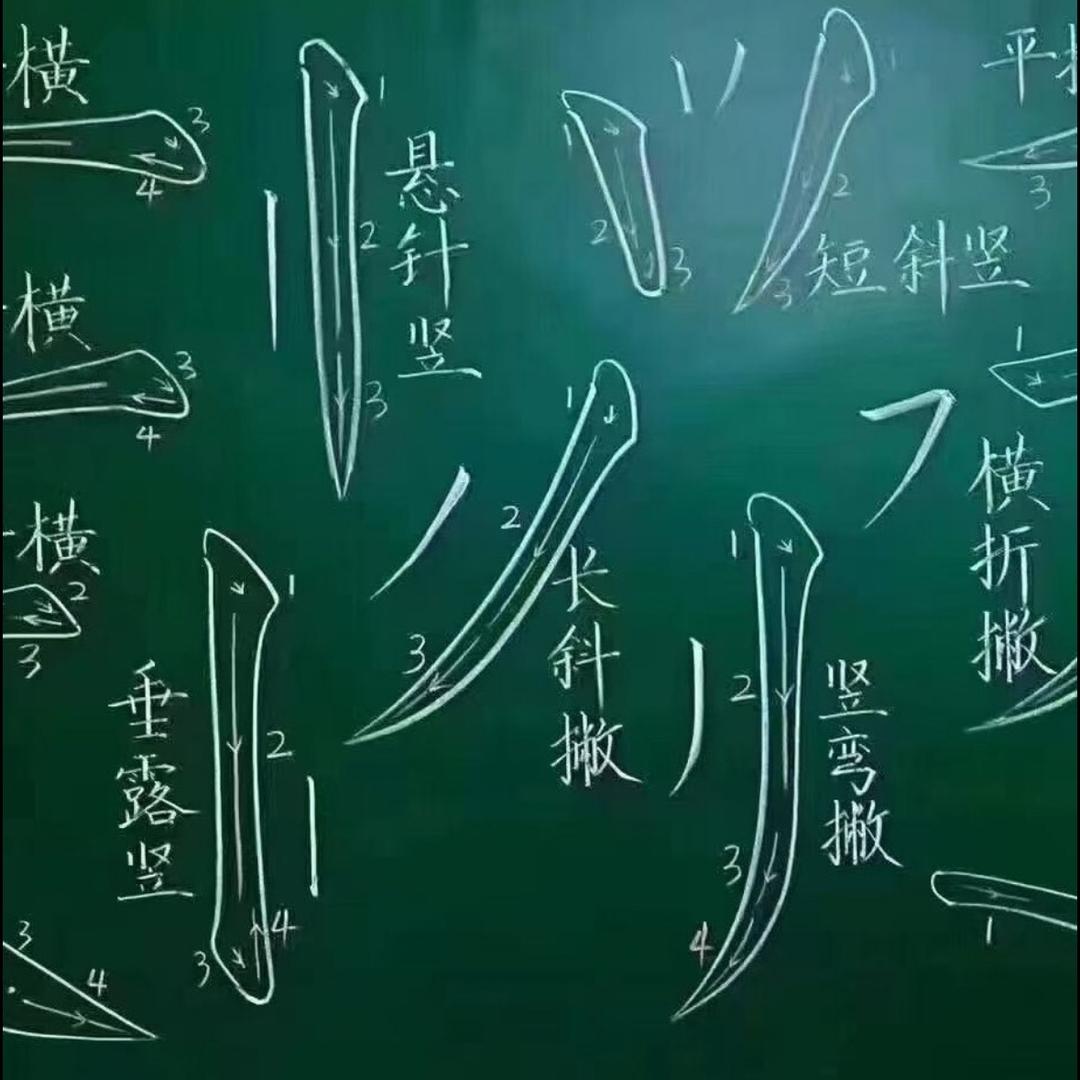 横
3
4
横
3
4
横
2
3
3
4
悬针竖
1
2
3
垂露竖
1
2
3
4
短斜竖
1
2
3
1
2
3
长斜撇
1
2
3
竖弯撇
1
2
3
4
平
3
横折撇
1
1